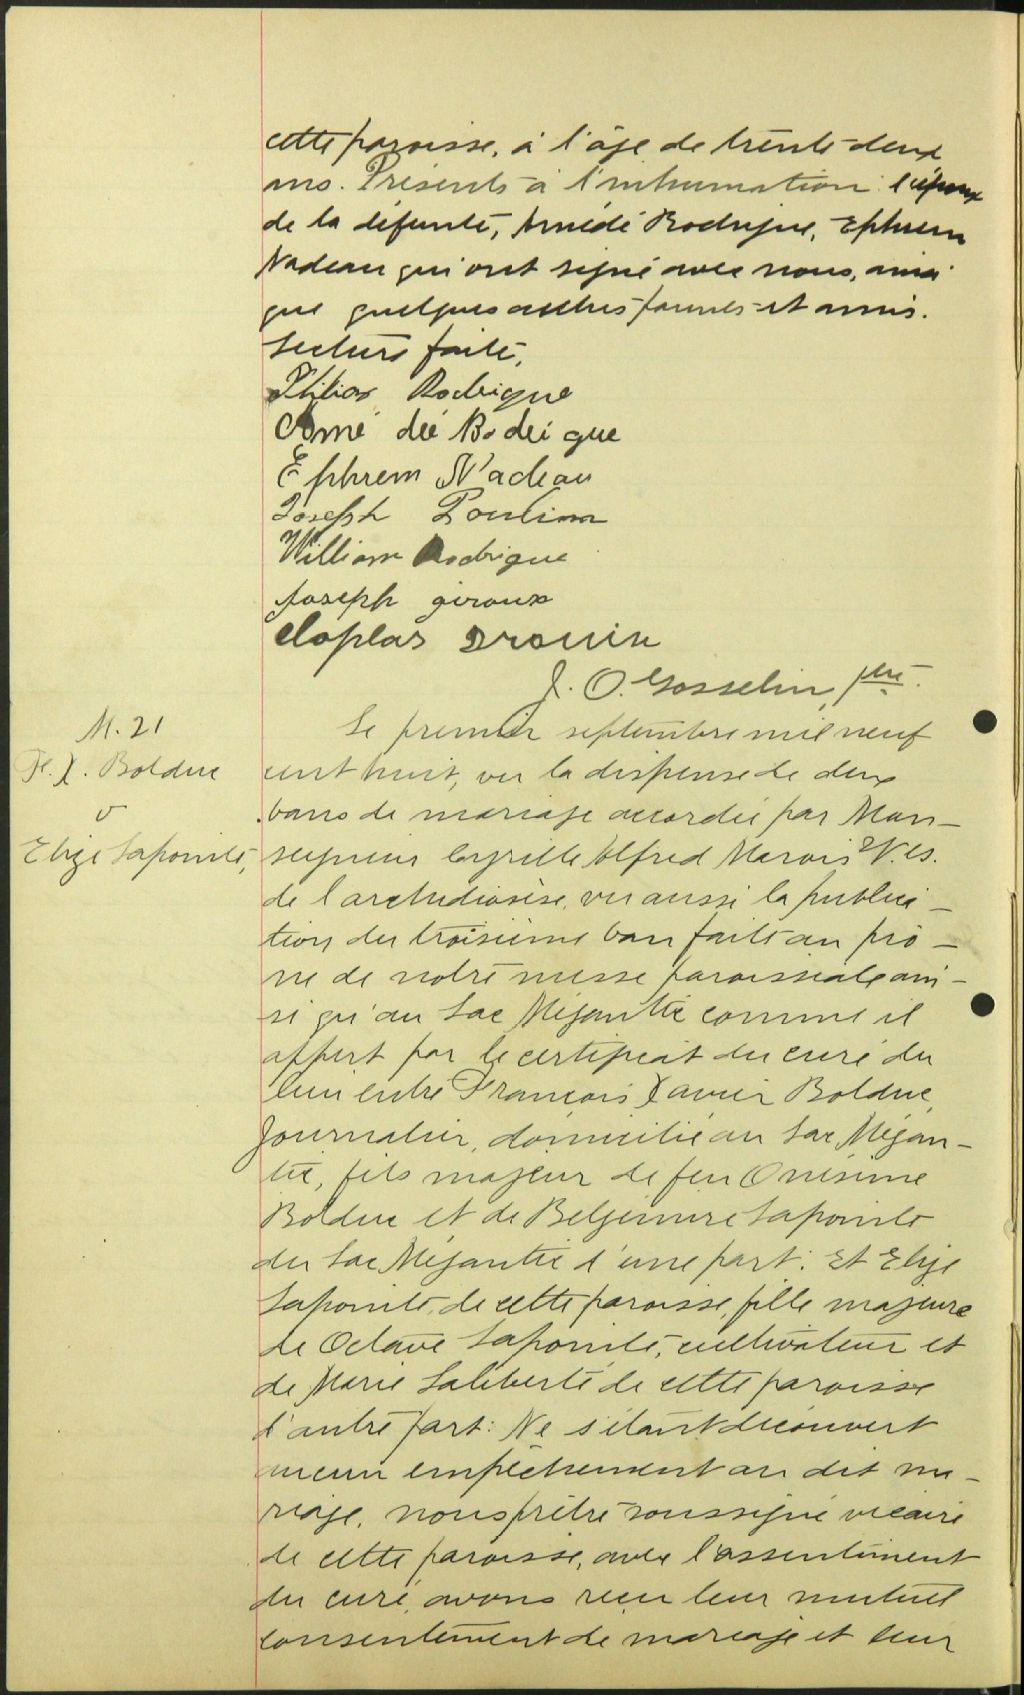 cette paroisse, à l'âge de trente-deux
ans. Présents à l'inhumation: l'époux
de la défunte, Amédé Rodrigue, Ephrem
Nadeau qui ont signé avec nous, ainsi
que quelques autres parents et amis.
Lecture faite,
Rodrigue
Amé dée Rodri gue
Ephrem Nadeau
Joseph Poulin
William Rodrigue
Joseph giroux
Cloplas Drouin
J. O. Gosselin, ptre.
M. 21
F. X. Bolduc
v
Elize Lapointe,
Le premier septembre mil neuf
cent huit, vu la dispense de deux
bans de mariage accordée par Mon-
seigneur Cyrille Alfred Marois V. G.
de l'archidiocèse, vu aussi la publica-
tion du troisième ban faite au prô-
ne de notre messe paroissiale ain-
si qu'au Lac Mégantic comme il
appert par le certificat du curé du
lieu entre François Xavier Bolduc,
Journalier, domicilié au Lac Mégan-
tic, fils majeur de feu Onésime
Bolduc et de Belzémire Lapointe
du Lac Mégantic d'une part: Et Elize
Lapointe, de cette paroisse, fille majeure
de Octave Lapointe, cultivateur et
de Marie Laliberté de cette paroisse
d'autre part: Ne s'étant découvert
aucun empêchement au dit ma-
riage, nous prêtre soussigné vicaire
de cette paroisse, avec l'assentiment
du curé, avons reçu leur mutuel
consentement de mariage et leur